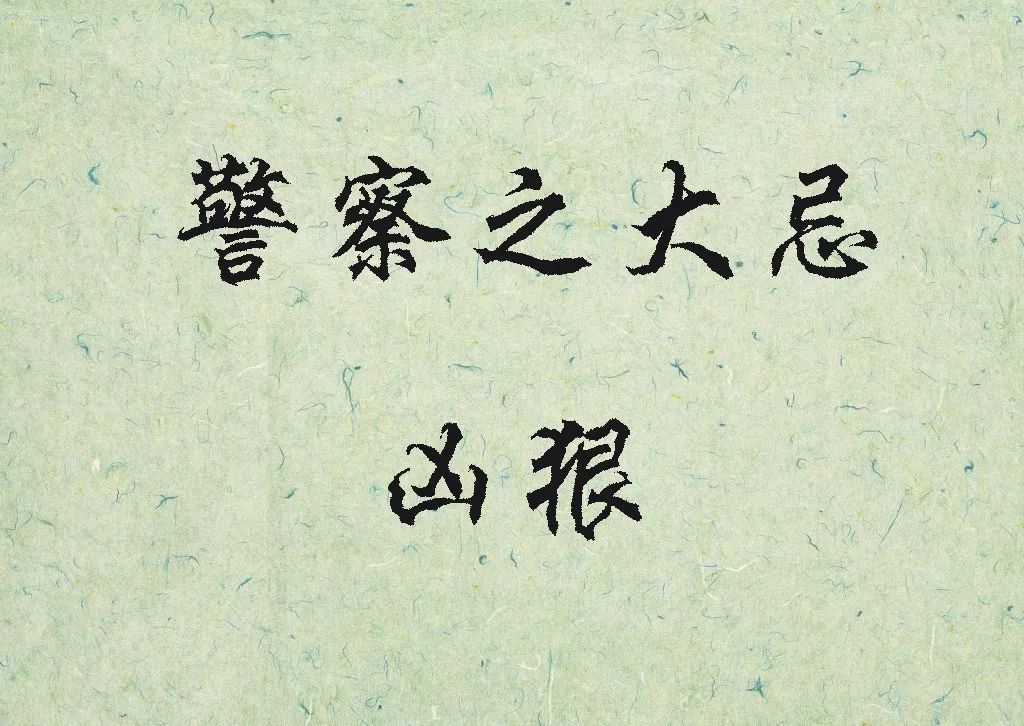 警察之大忌
凶狠